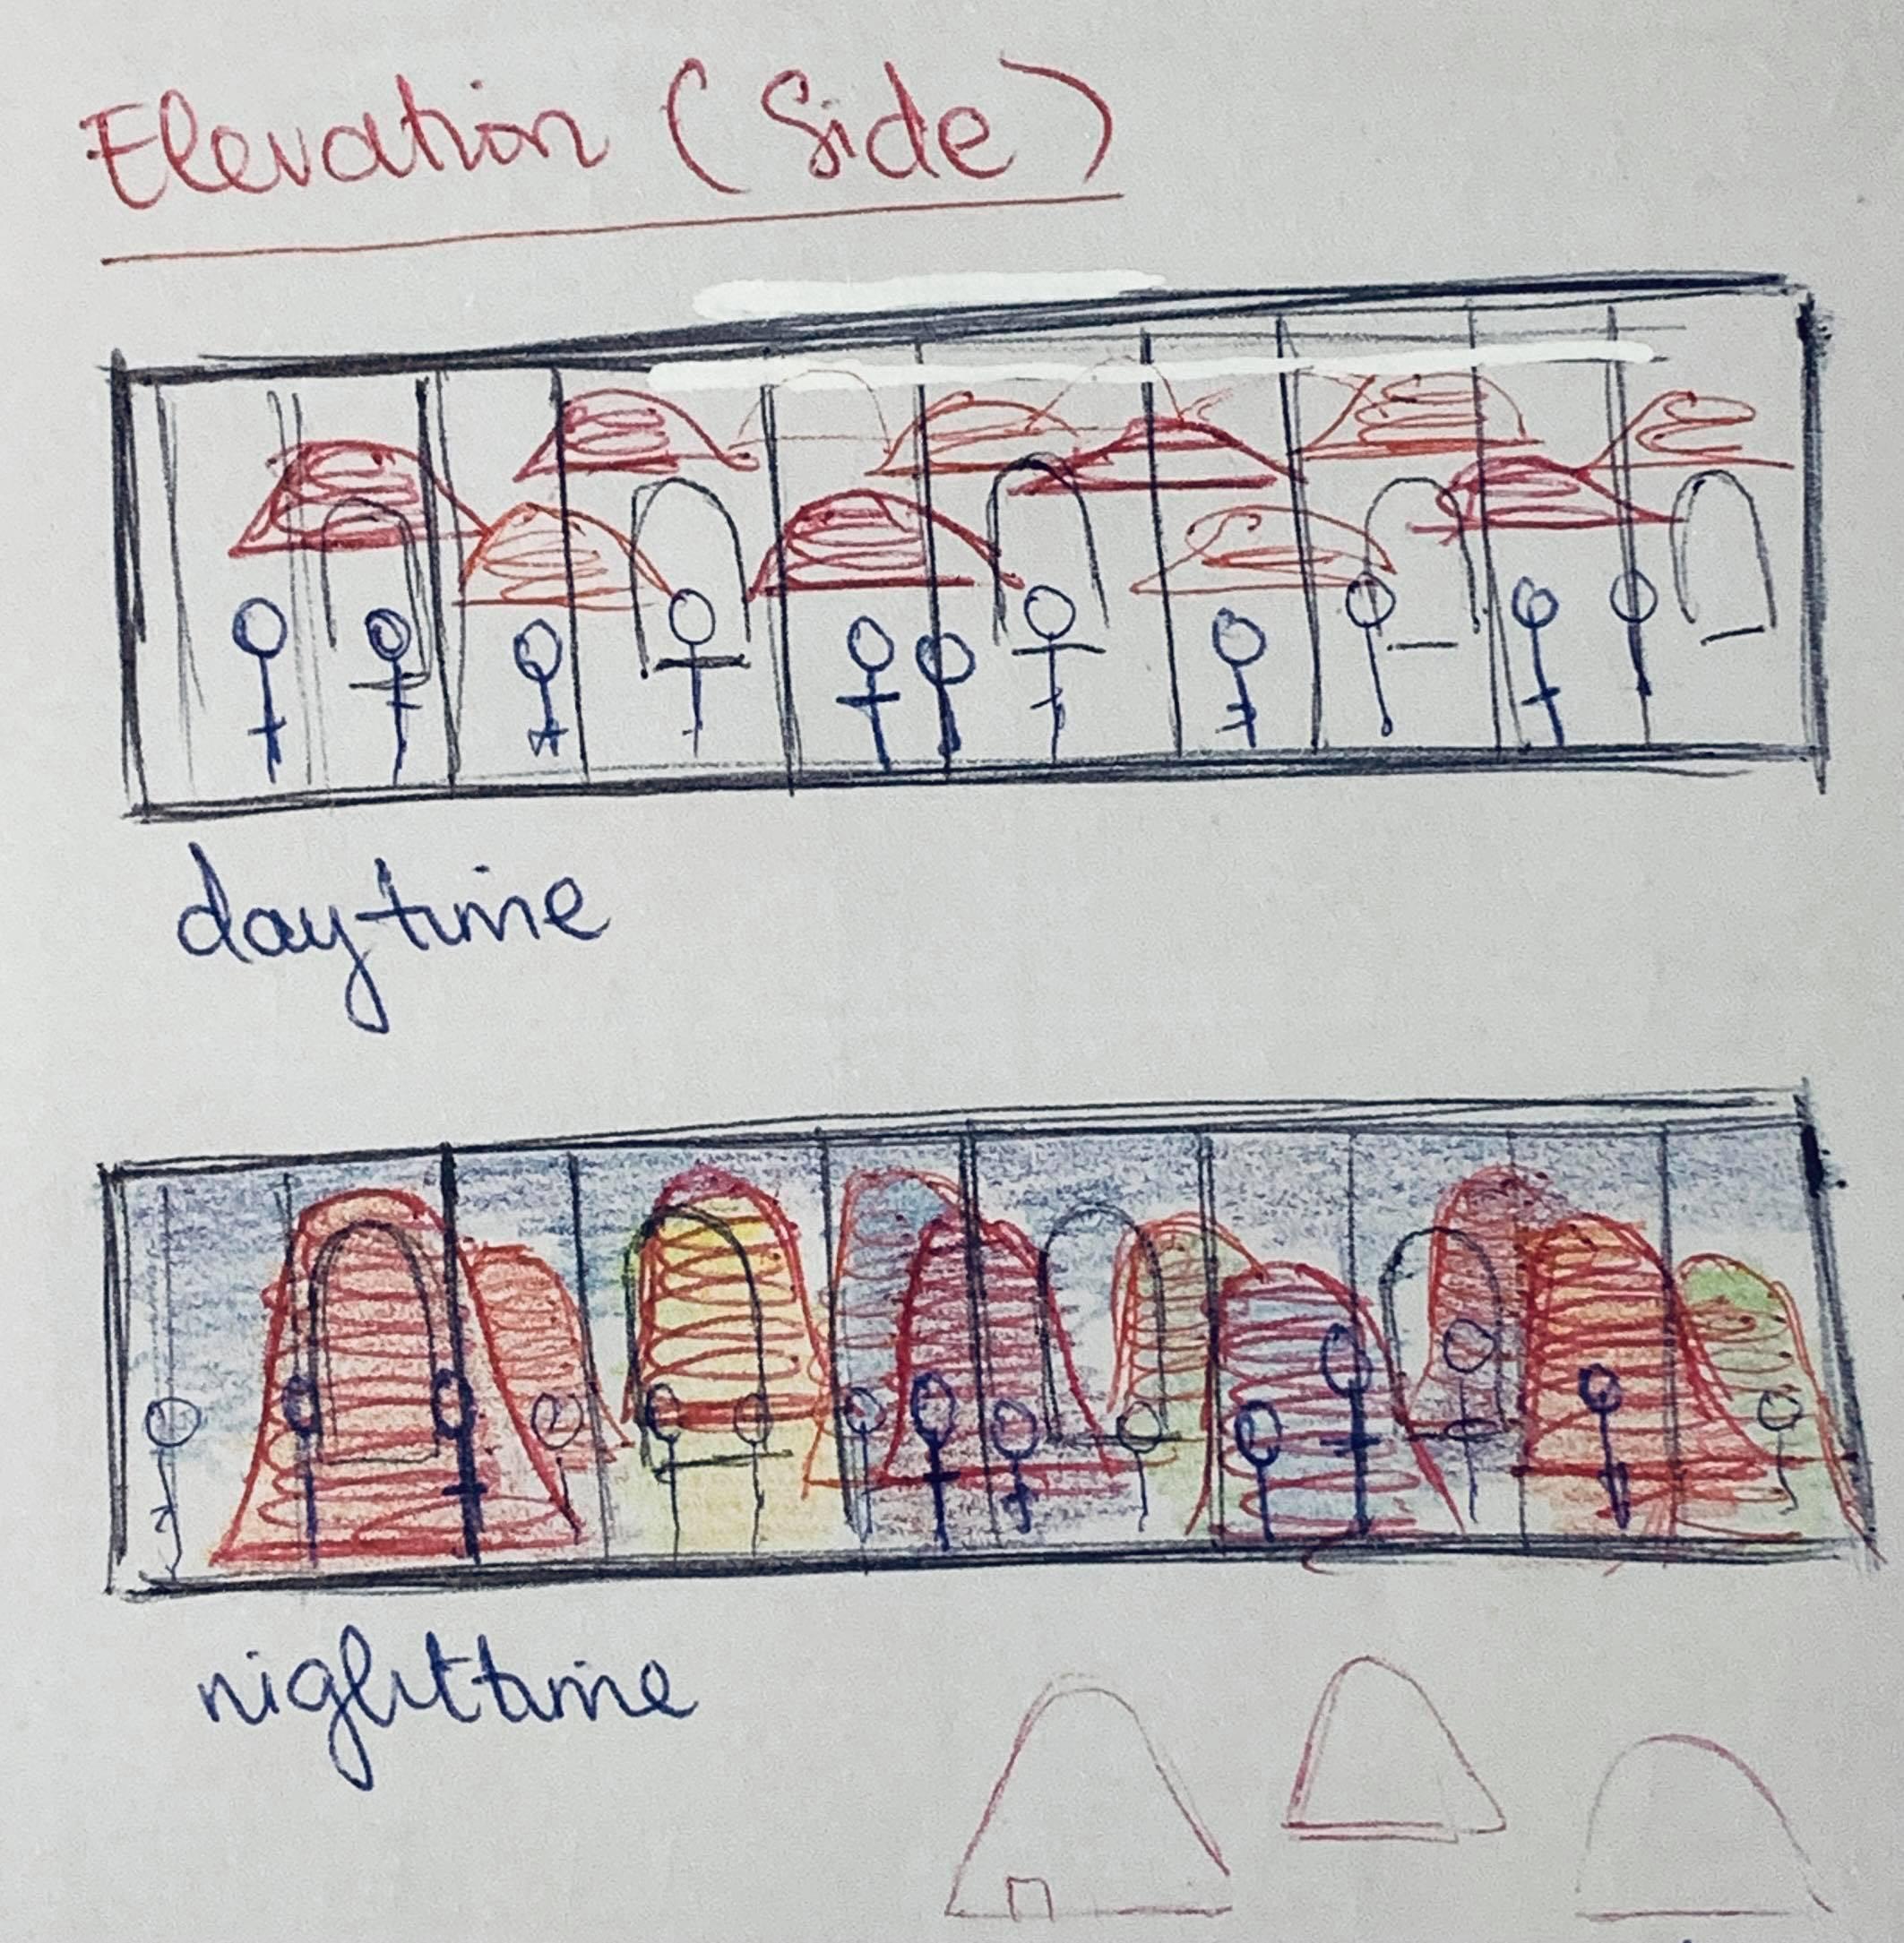 Elevation (Side)
daytime
nighttime